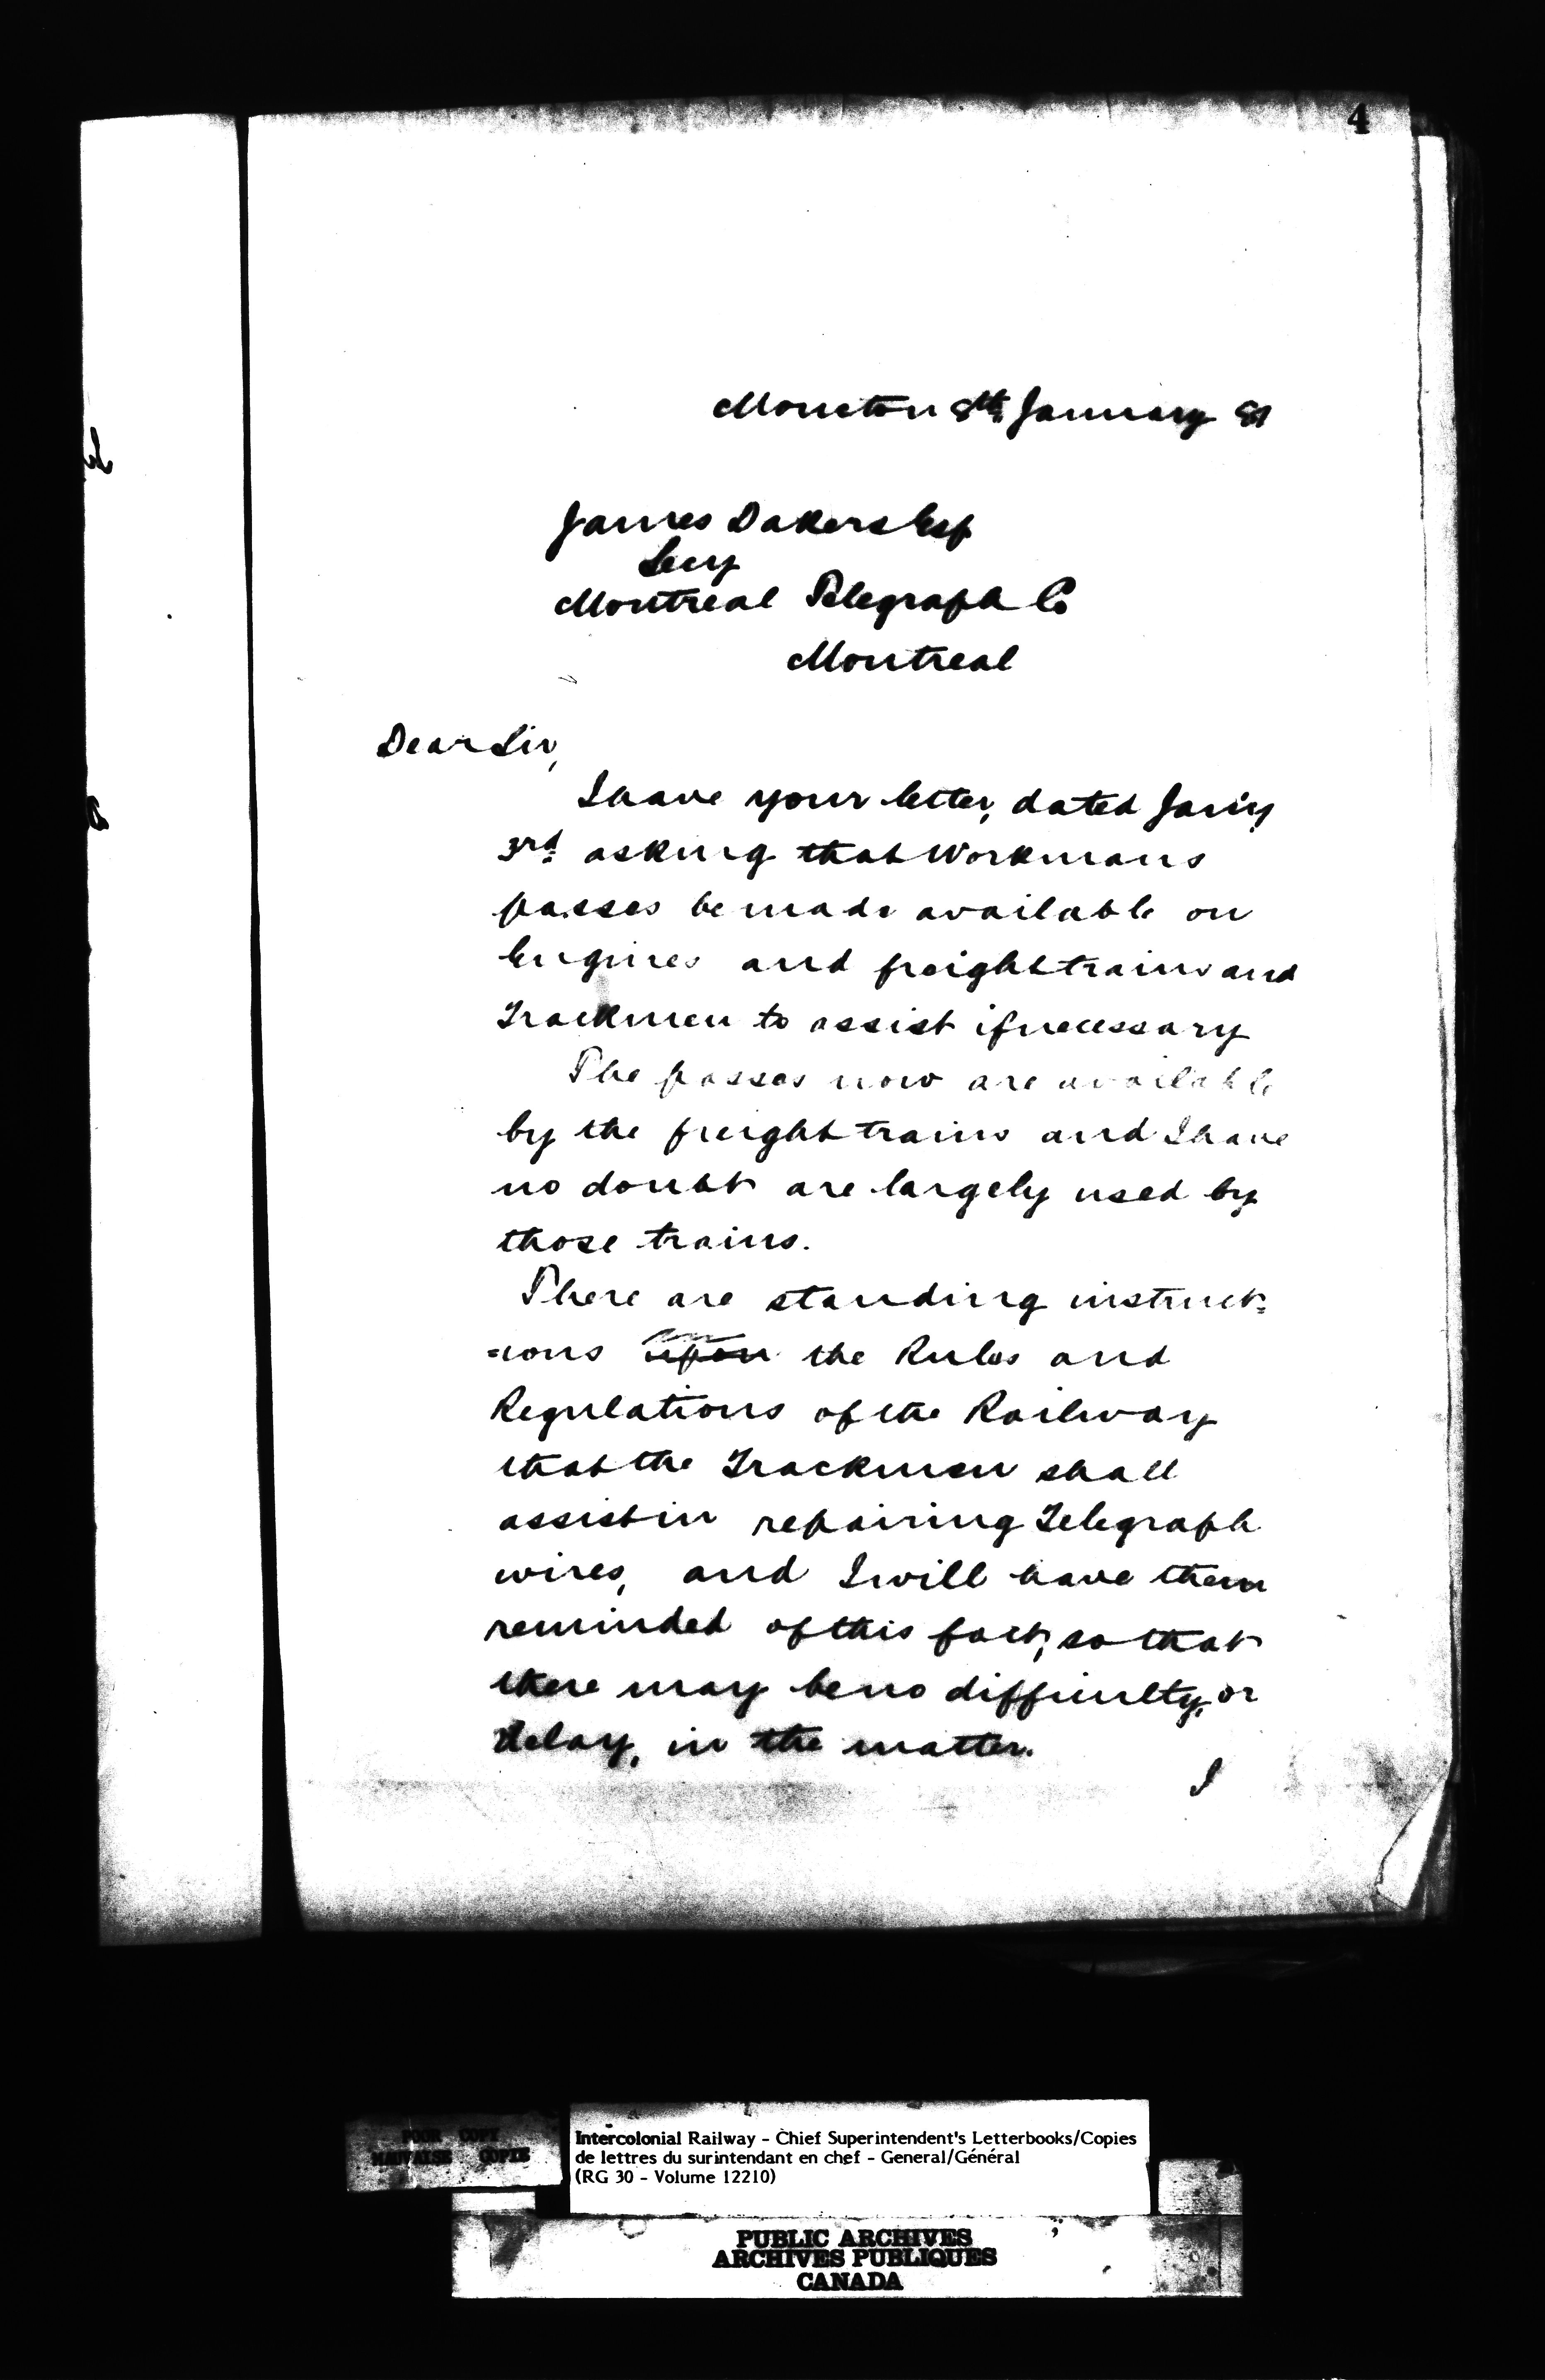 4
Moncton 8th January 81
James Dakers Esq
Secy
Montreal Telegraph Co
Montreal
Dear Sir,
I have your letter, dated Jan'y
3rd asking that Workmans
passes be made available on
Engines and freight trains and
Trackmen to assist if necessary
The passes now are available
by the freight trains and I have
no doubt are largely used by
those trains.
There are standing instruct=
=ions in upon the Rules and
Regulations of the Railway
that the Trackmen shall
assist in repairing Telegraph
wires, and I will have them
reminded of this fact, so that
there may be no difficulty, or
delay, in the matter.
I
POOR COPY
MAUVAISE COPIE
Intercolonial Railway - Chief Superintendent's Letterbooks/Copies
de lettres du surintendant en chef - General/Général
(RG 30 - Volume 12210)
PUBLIC ARCHIVES
ARCHIVES PUBLIQUES
CANADA